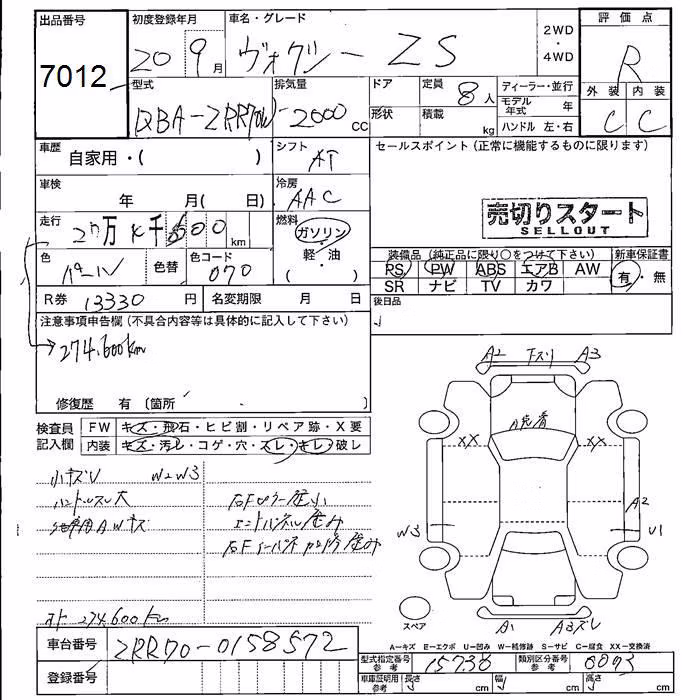 出品番号
7012
初度登録年月
20 9月
車名・グレード
ヴォクシー ZS
2WD
・
4WD
評価点
R
外装 内装
C C
型式
DBA-ZRR70W
排気量
2000 cc
ドア
形状
定員 8人
積載 kg
ディーラー・並行
モデル年式 年
ハンドル 左・右
車歴
自家用・( )
シフト
AT
セールスポイント (正常に機能するものに限ります)
車検
年 月( 日)
冷房
AAC
売切りスタート
SELLOUT
走行
km
燃料
ガソリン
軽・油
( ・ )
色
パール
色替
色コード
070
装備品 (純正品に限り○をつけて下さい)
新車保証書
PS PW ABS エアB AW
有・無
SR ナビ TV カワ
R券 13330 円
名変期限 月 日
後日品
注意事項申告欄 (不具合内容等は具体的に記入して下さい)
274,600km
修復歴 有 (箇所 )
検査員記入欄
FW キズ・飛石・ヒビ割・リペア跡・X要
内装 キズ・汚レ・コゲ・穴・スレ・キレ・破レ
小キズU W2W3
ハンドルスレ大
AWキズ
エンドパネル歪み
メーター 274,600km
A2 下ズリ A3
XX XX
W3
A2
U1
スペア
A1 A3ズレ
A-キズ E-エクボ U-凹み W-補修跡 S-サビ C-腐食 XX-交換済
車台番号
ZRR70-0158572
登録番号
型式指定番号
参考
15738
類別区分番号
参考
0093
車庫証明用
参考
長さ cm
幅 cm
高さ cm